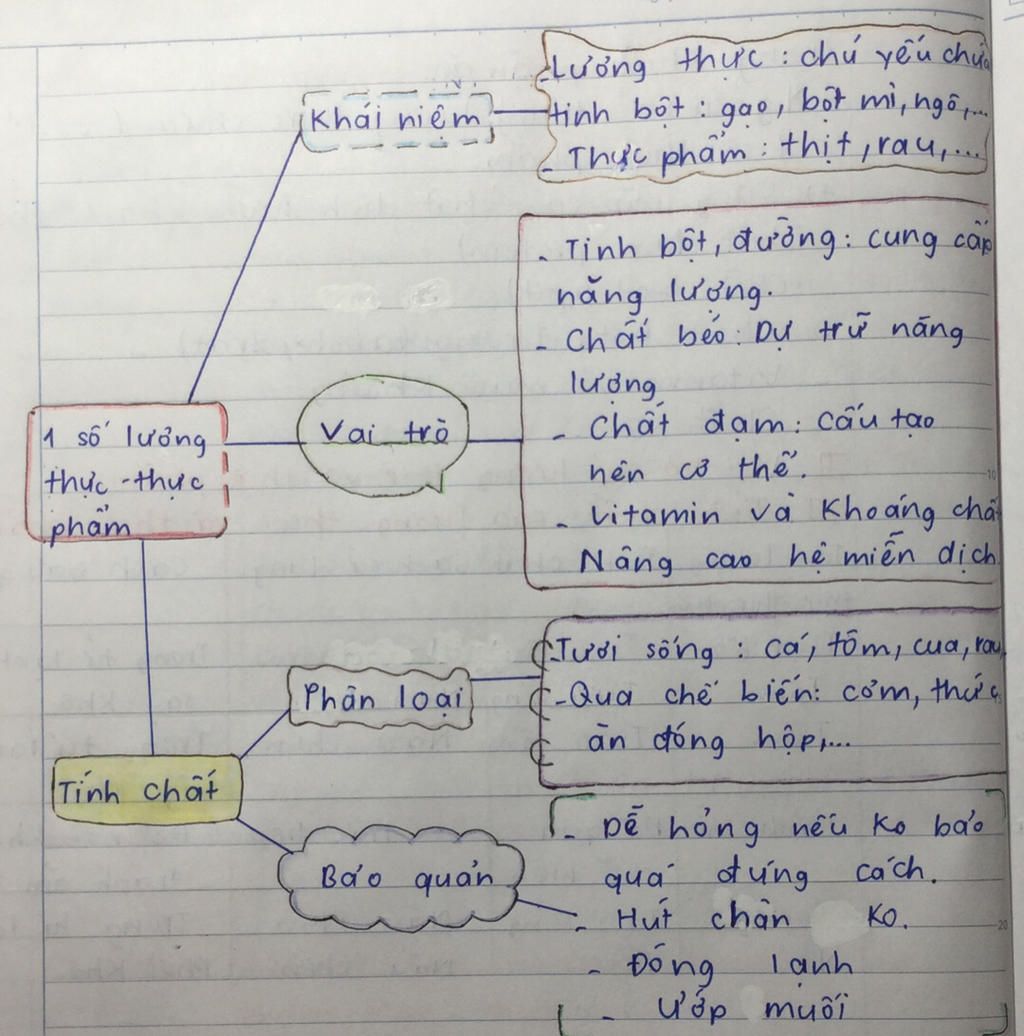 Khái niệm
- Lương thực : chủ yếu chứa
tinh bột : gạo, bột mì, ngô,...
- Thực phẩm : thịt, rau,...
1 số lương
thực - thực
phẩm
Vai trò
- Tinh bột, đường: cung cấp
năng lượng.
- Chất béo: Dự trữ năng
lượng
- Chất đạm: Cấu tạo
nên cơ thể.
- Vitamin và Khoáng chất
Nâng cao hệ miễn dịch
Tính chất
Phân loại
- Tươi sống : cá, tôm, cua, rau,
- Qua chế biến: cơm, thức
ăn đóng hộp,...
Bảo quản
- Dễ hỏng nếu ko bảo
quả đúng cách.
- Hút chân ko.
- Đóng lạnh
- Ướp muối